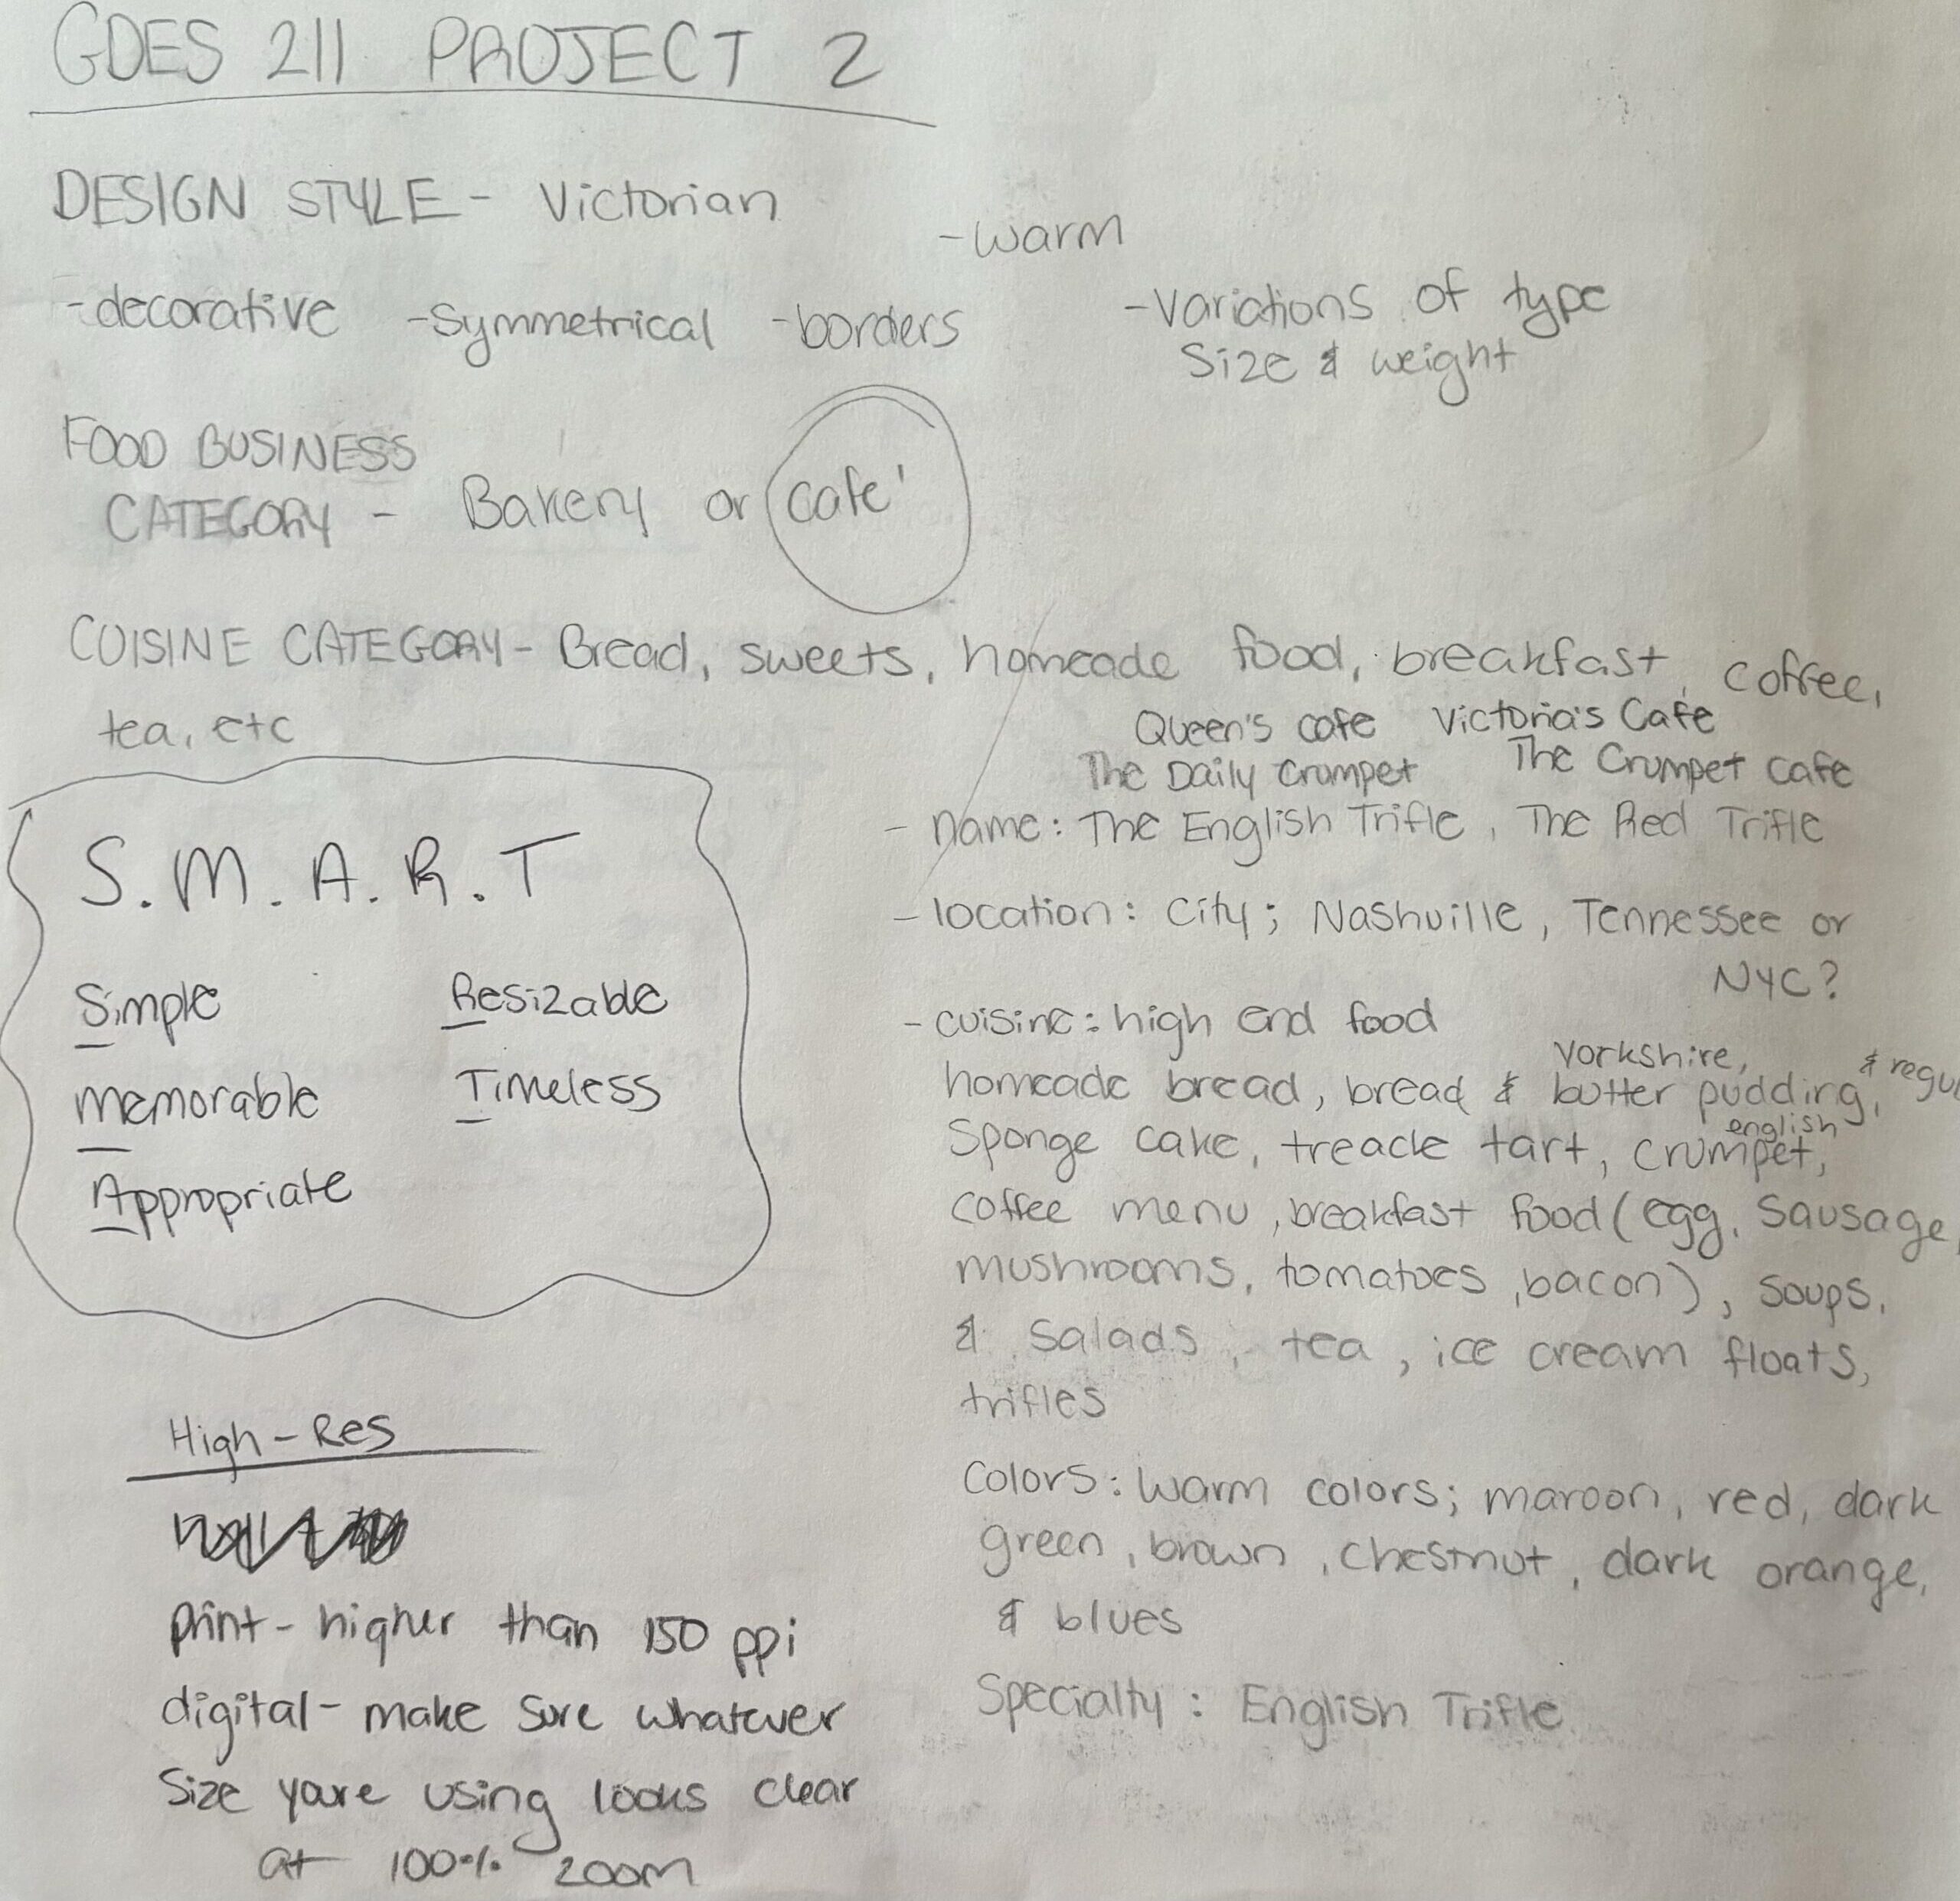 GDES 211 PROJECT 2
DESIGN STYLE - Victorian
- warm
- decorative - Symmetrical - borders
- Variations of type
Size & weight
FOOD BUSINESS
CATEGORY - Bakery or cafe'
CUISINE CATEGORY - Bread, sweets, homeade food, breakfast, coffee,
tea, etc
S.M.A.R.T
Simple
Resizable
Memorable
Timeless
Appropriate
Queen's cafe Victoria's Cafe
The Daily Crumpet The Crumpet Cafe
- name: The English Trifle, The Red Trifle
- location: City; Nashville, Tennessee or
NYC?
- cuisine: high end food
Yorkshire, & regul
homeade bread, bread & butter pudding,
english
Sponge cake, treacle tart, crumpet,
coffee menu, breakfast food (egg, Sausage,
mushrooms, tomatoes, bacon), soups,
& Salads, tea, ice cream floats,
trifles
Colors: Warm colors; maroon, red, dark
green, brown, chestnut, dark orange,
& blues
Specialty: English Trifle
High-Res
print - higher than 150 ppi
digital - make sure whatever
Size youre using looks clear
at 100% zoom